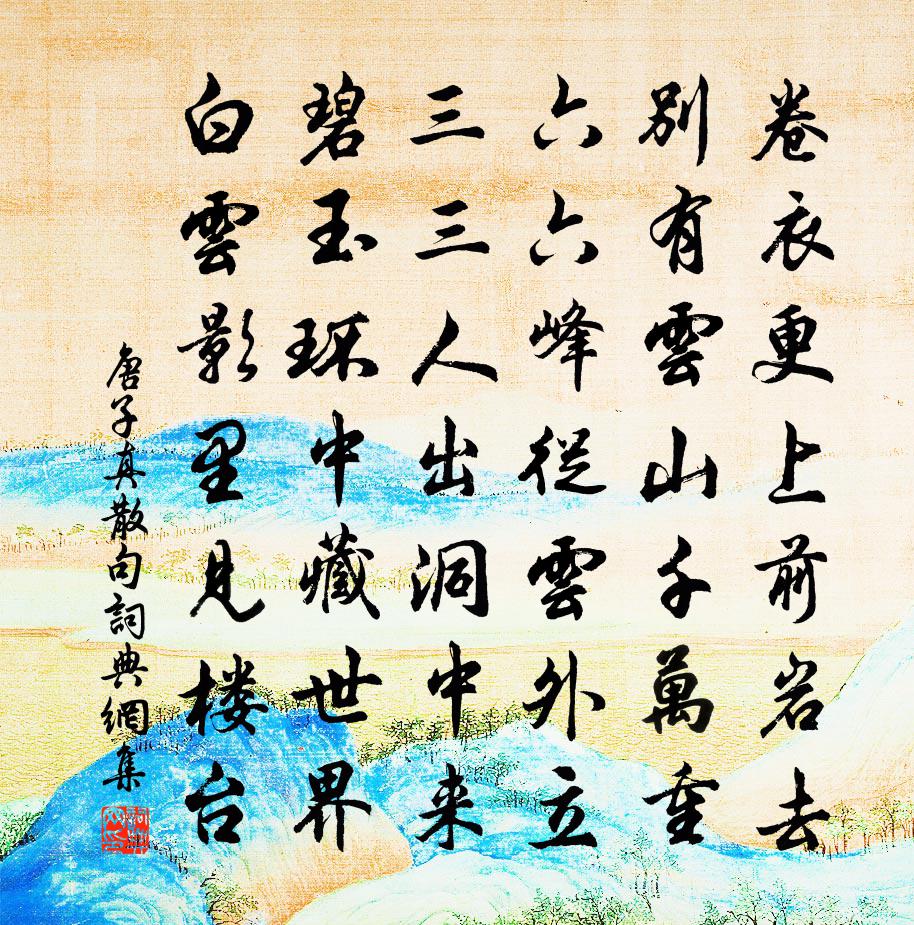 卷衣更上前岩去
别有雲山千萬重
六六峰從雲外立
三三人出洞中来
碧玉环中藏世界
白雲影里見楼台
唐子真散句詞典網集